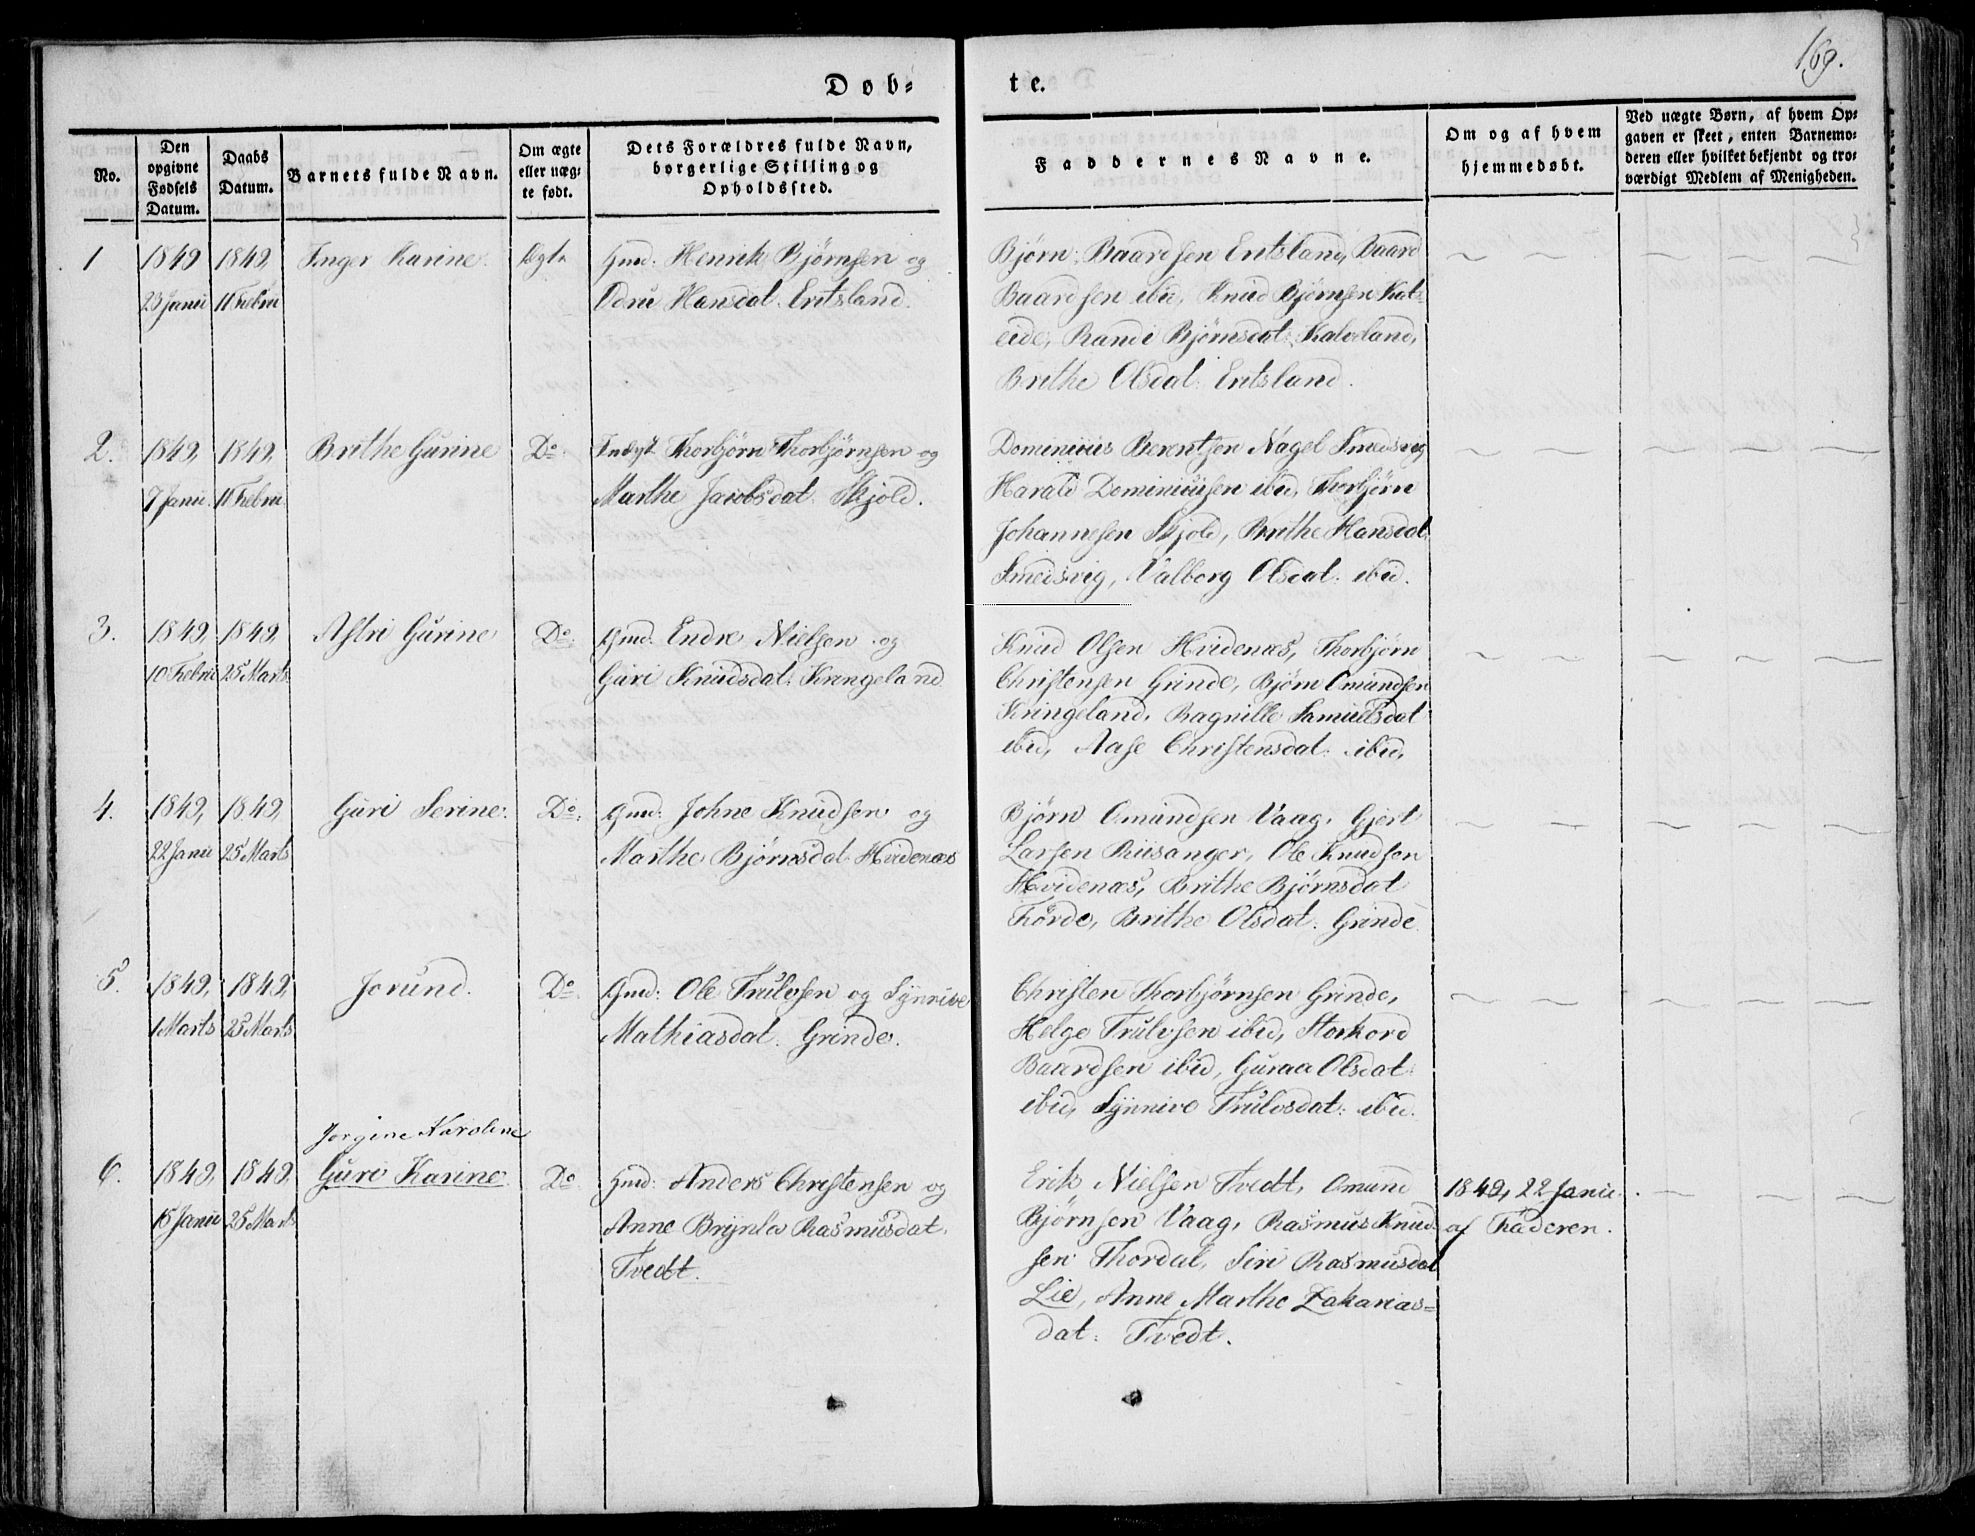 169.
Døb-
te.
No.
Den opgivne Fødsels Datum.
Daabs Datum.
Barnets fulde Navn.
Om ægte eller uæg-te født.
Dets Forældres fulde Navn, borgerlige Stilling og Opholdssted.
Faddernes Navne.
Om og af hvem hjemmedøbt.
Ved uægte Børn, af hvem Op-gaven er skeet, enten Barnemo-deren eller hvilket bekjendt og tro-værdigt Medlem af Menigheden.
1
1849
23 Janu
1849,
11 Febru
Inger Karine.
Ægte
Gmd: Henrik Bjørnsen og
Odni Hansdat. Eritsland.
Bjørn Baardsen Eritsland, Baard
Baardsen ibid, Knud Bjørnsen Kat-
eide, Randi Bjørnsdat: Kalvland,
Brithe Olsdat: Eritsland.
2.
1849,
7 Janu.
1849,
11 Febru
Brithe Gurine
Do:
Indst. Thorbjørn Thorbjørnsen og
Marthe Jacobsdat. Skjold.
Dominicus Berentsen Nagel Smedsvig
Harald Dominicusen ibid, Thorbjørn
Johannesen Skjold, Brithe Hansdat
Smedsvig, Valborg Olsdat: ibid.
3.
1849,
10 Febru
1849,
25 Marts
Astri Gurine
Do:
Gmd: Endre Nielsen og
Guri Knudsdat: Kringeland
Knud Olsen Hvidenæs, Thorbjørn
Christensen Grinde, Bjørn Omundsen
Kringeland, Ragnille Samuelsdat
ibid, Aase Christensdat: ibid,
4.
1849,
22 Janu
1849,
25 Marts
Guri Serine.
Do:
Gmd: Johne Knudsen og
Marthe Bjørnsdat Hvidenæs
Bjørn Omundsen Vaag, Gjert
Larsen Riisanger, Ole Knudsen
Hvidenæs, Brithe Bjørnsdat
Førde, Brithe Olsdat. Grinde
5.
1849,
1 Marts
1849,
25 Marts
Jorund.
Do:
Gmd: Ole Trulvsen og Synnive
Mathiasdat. Grinde.
Christen Thorbjørnsen Grinde,
Helge Trulvsen ibid, Storkord
Baardsen ibid, Guraa Olsdat:
ibid, Synnive Trulvsdat: ibid.
6.
1849,
15 Janu
1849,
25 Marts
Jorgine Karoline
Guri Karine.
Do:
Gmd: Anders Christensen og
Anne Brynla Rasmusdat.
Tvedt.
Erik Nielsen Tvedt, Omund
Bjørnsen Vaag, Rasmus Knud-
sen Thordal, Siri Rasmusdat
Lie, Anne Marthe Zakarias-
dat: Tvedt.
1849, 22 Janu.
af Faderen.